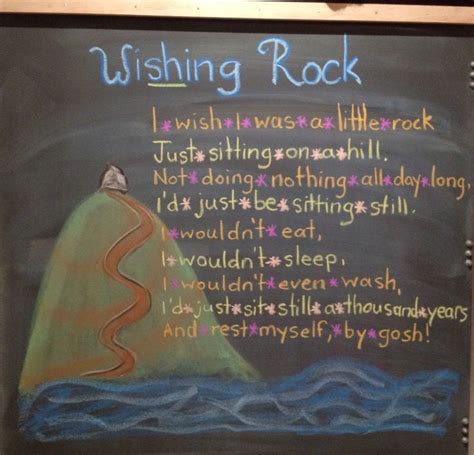 Wishing Rock
I*wish*I*was*a*little*rock
Just*sitting*on*a*hill.
Not*doing*nothing*all*day*long,
I'd*just*be*sitting*still.
I*wouldn't*eat,
I*wouldn't*sleep,
I*wouldn't*even*wash,
I'd*just*sit*still*a*thousand*years
And*rest*myself,*by*gosh!